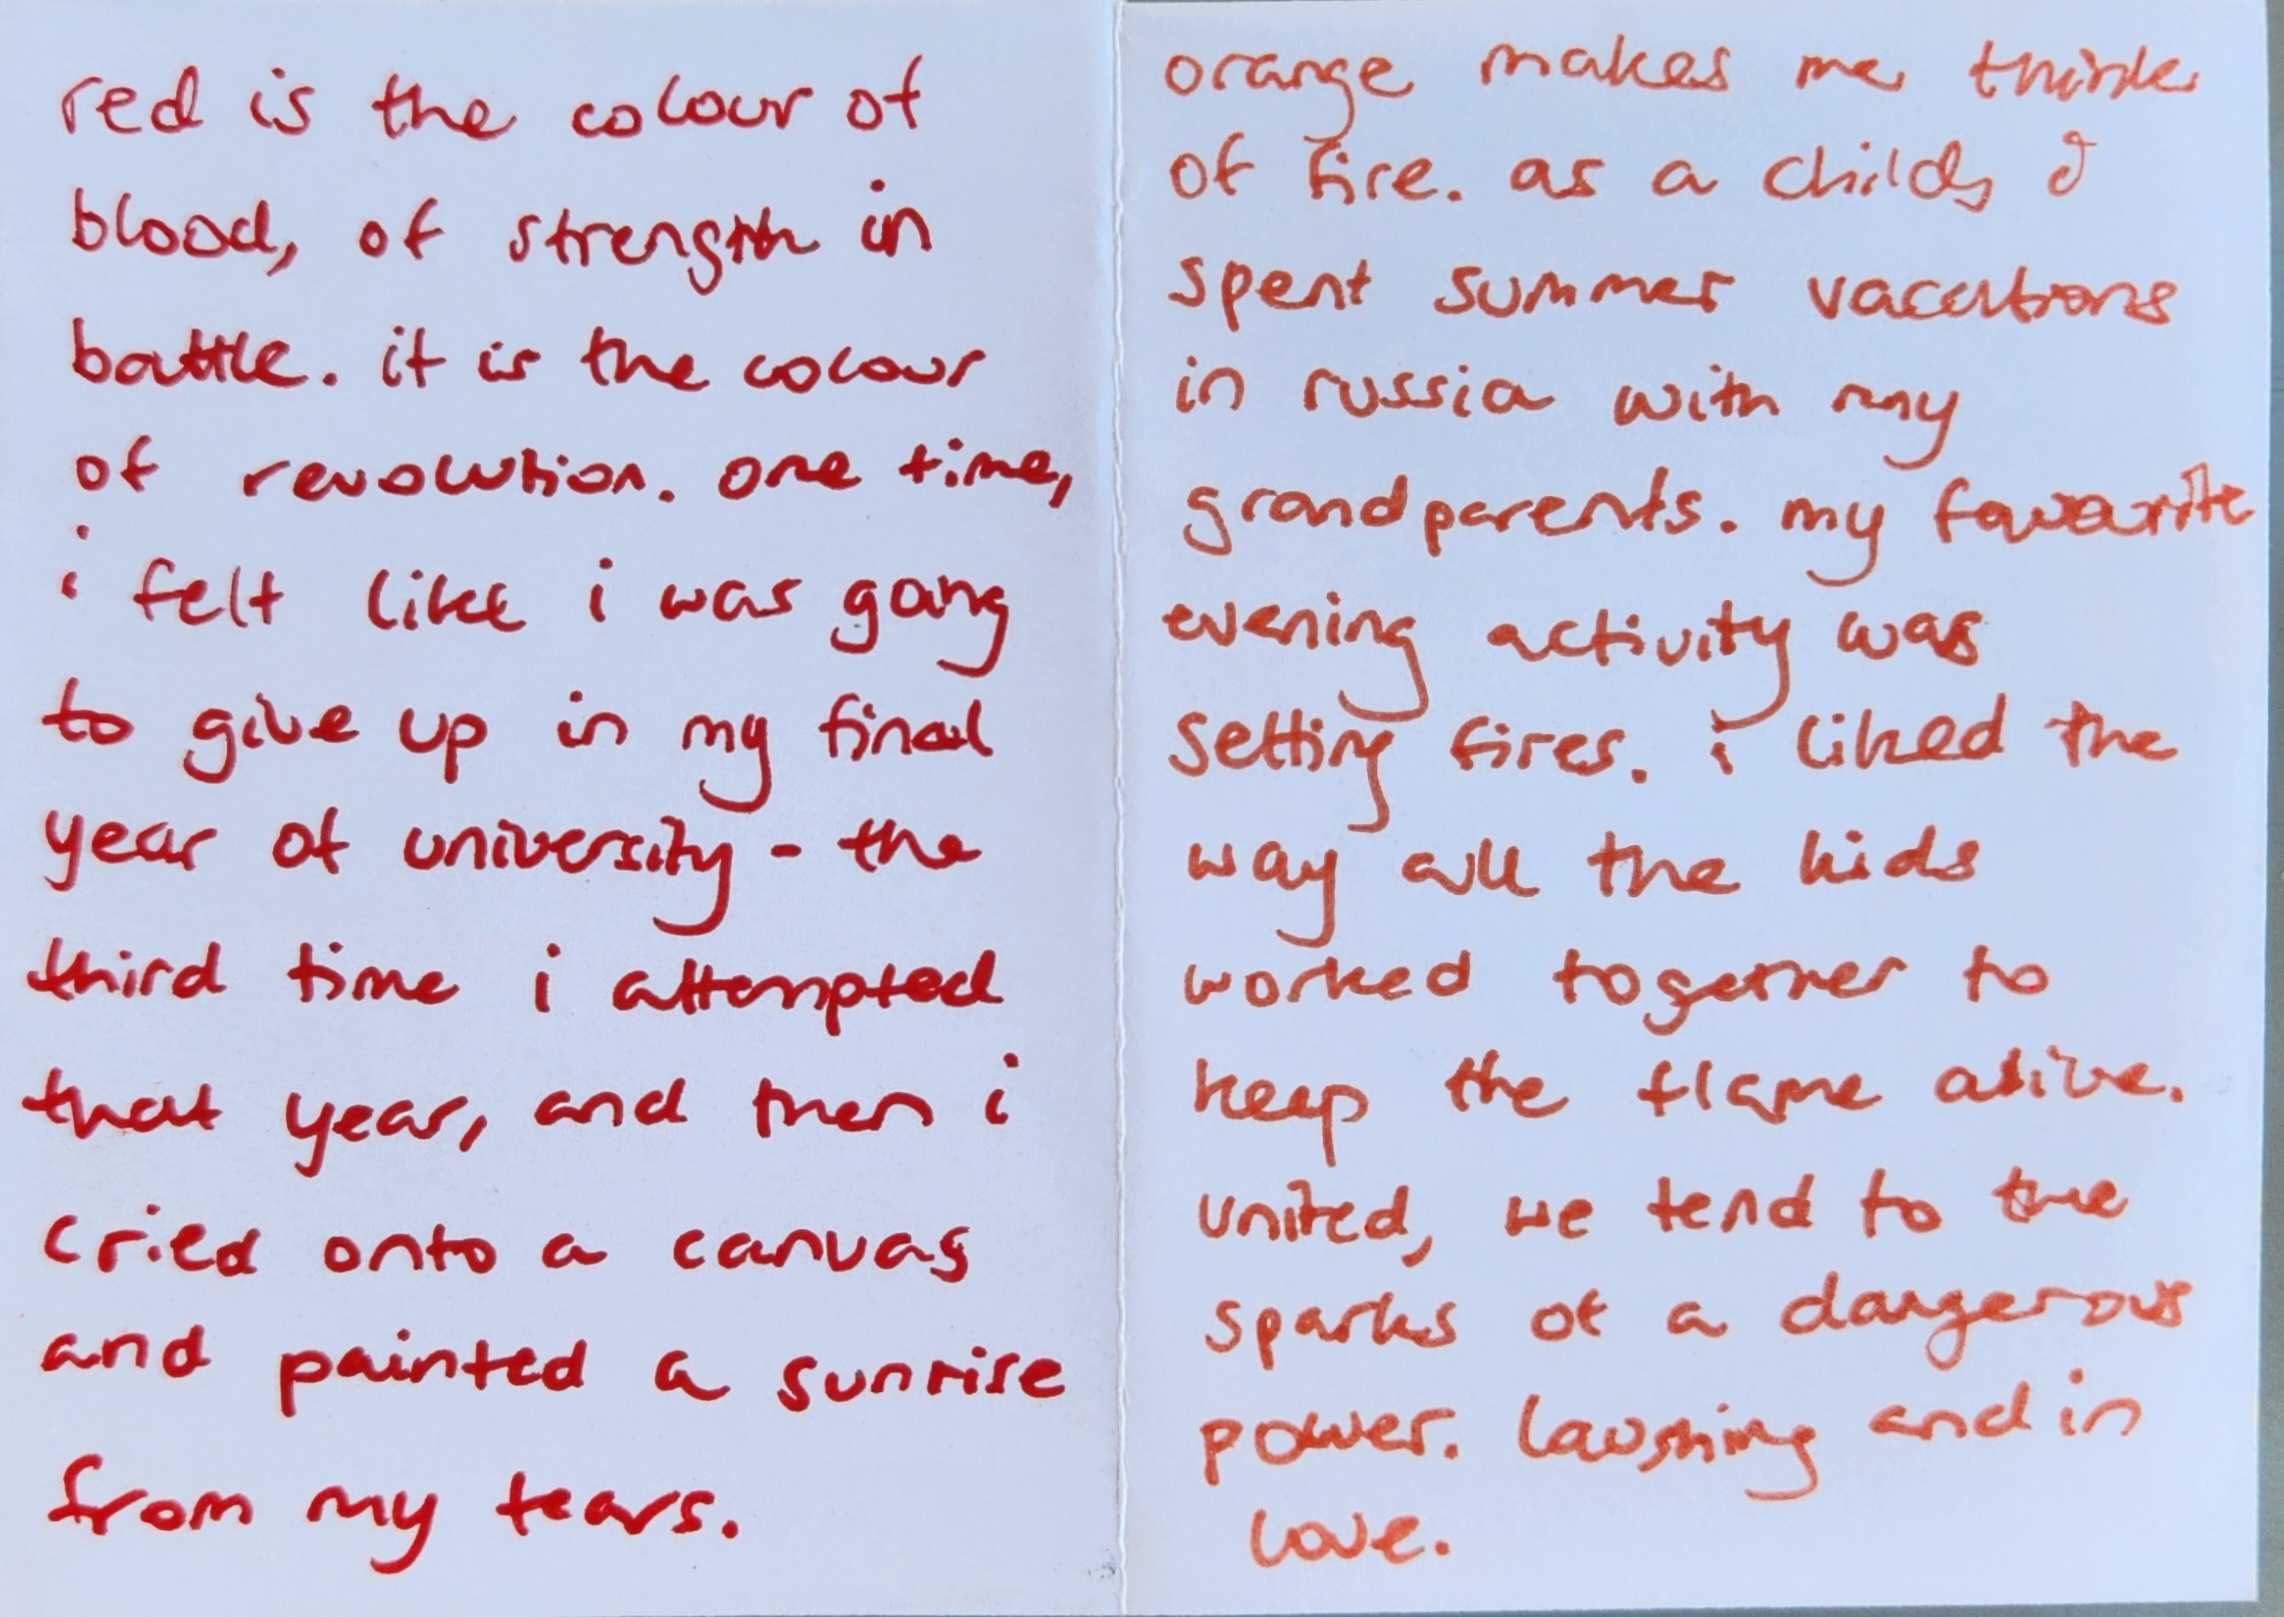 red is the colour of
blood, of strength in
battle. it is the colour
of revolution. one time,
i felt like i was going
to give up in my final
year of university - the
third time i attempted
that year, and then i
cried onto a canvas
and painted a sunrise
from my tears.
orange makes me think
of fire. as a child, I
spent summer vacations
in russia with my
grandparents. my favourite
evening activity was
setting fires. i liked the
way all the kids
worked together to
keep the flame alive.
united, we tend to the
sparks of a dangerous
power. laughing and in
love.